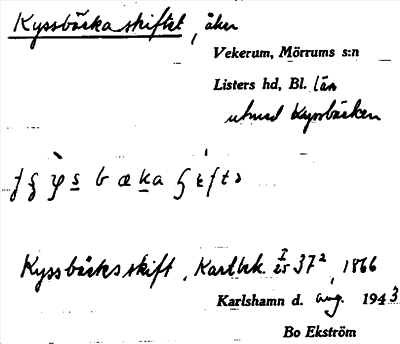 Kyssbäcka skiftet, åker
Vekerum, Mörrums s:n
Listers hd, Bl. län
utmed Kyssbäcken
Kyssbäcks skift, Kartbk. 37², 1866
Karlshamn d. aug. 1943
Bo Ekström